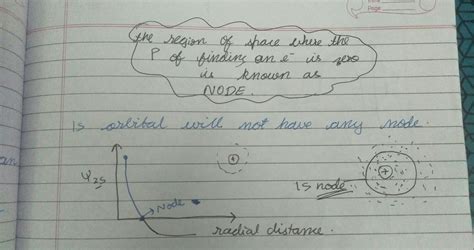 the region of space where the
P of finding an e⁻ is zero
is known as
NODE.
1s orbital will not have any node.
Ψ2s
Node
1s node
radial distance.